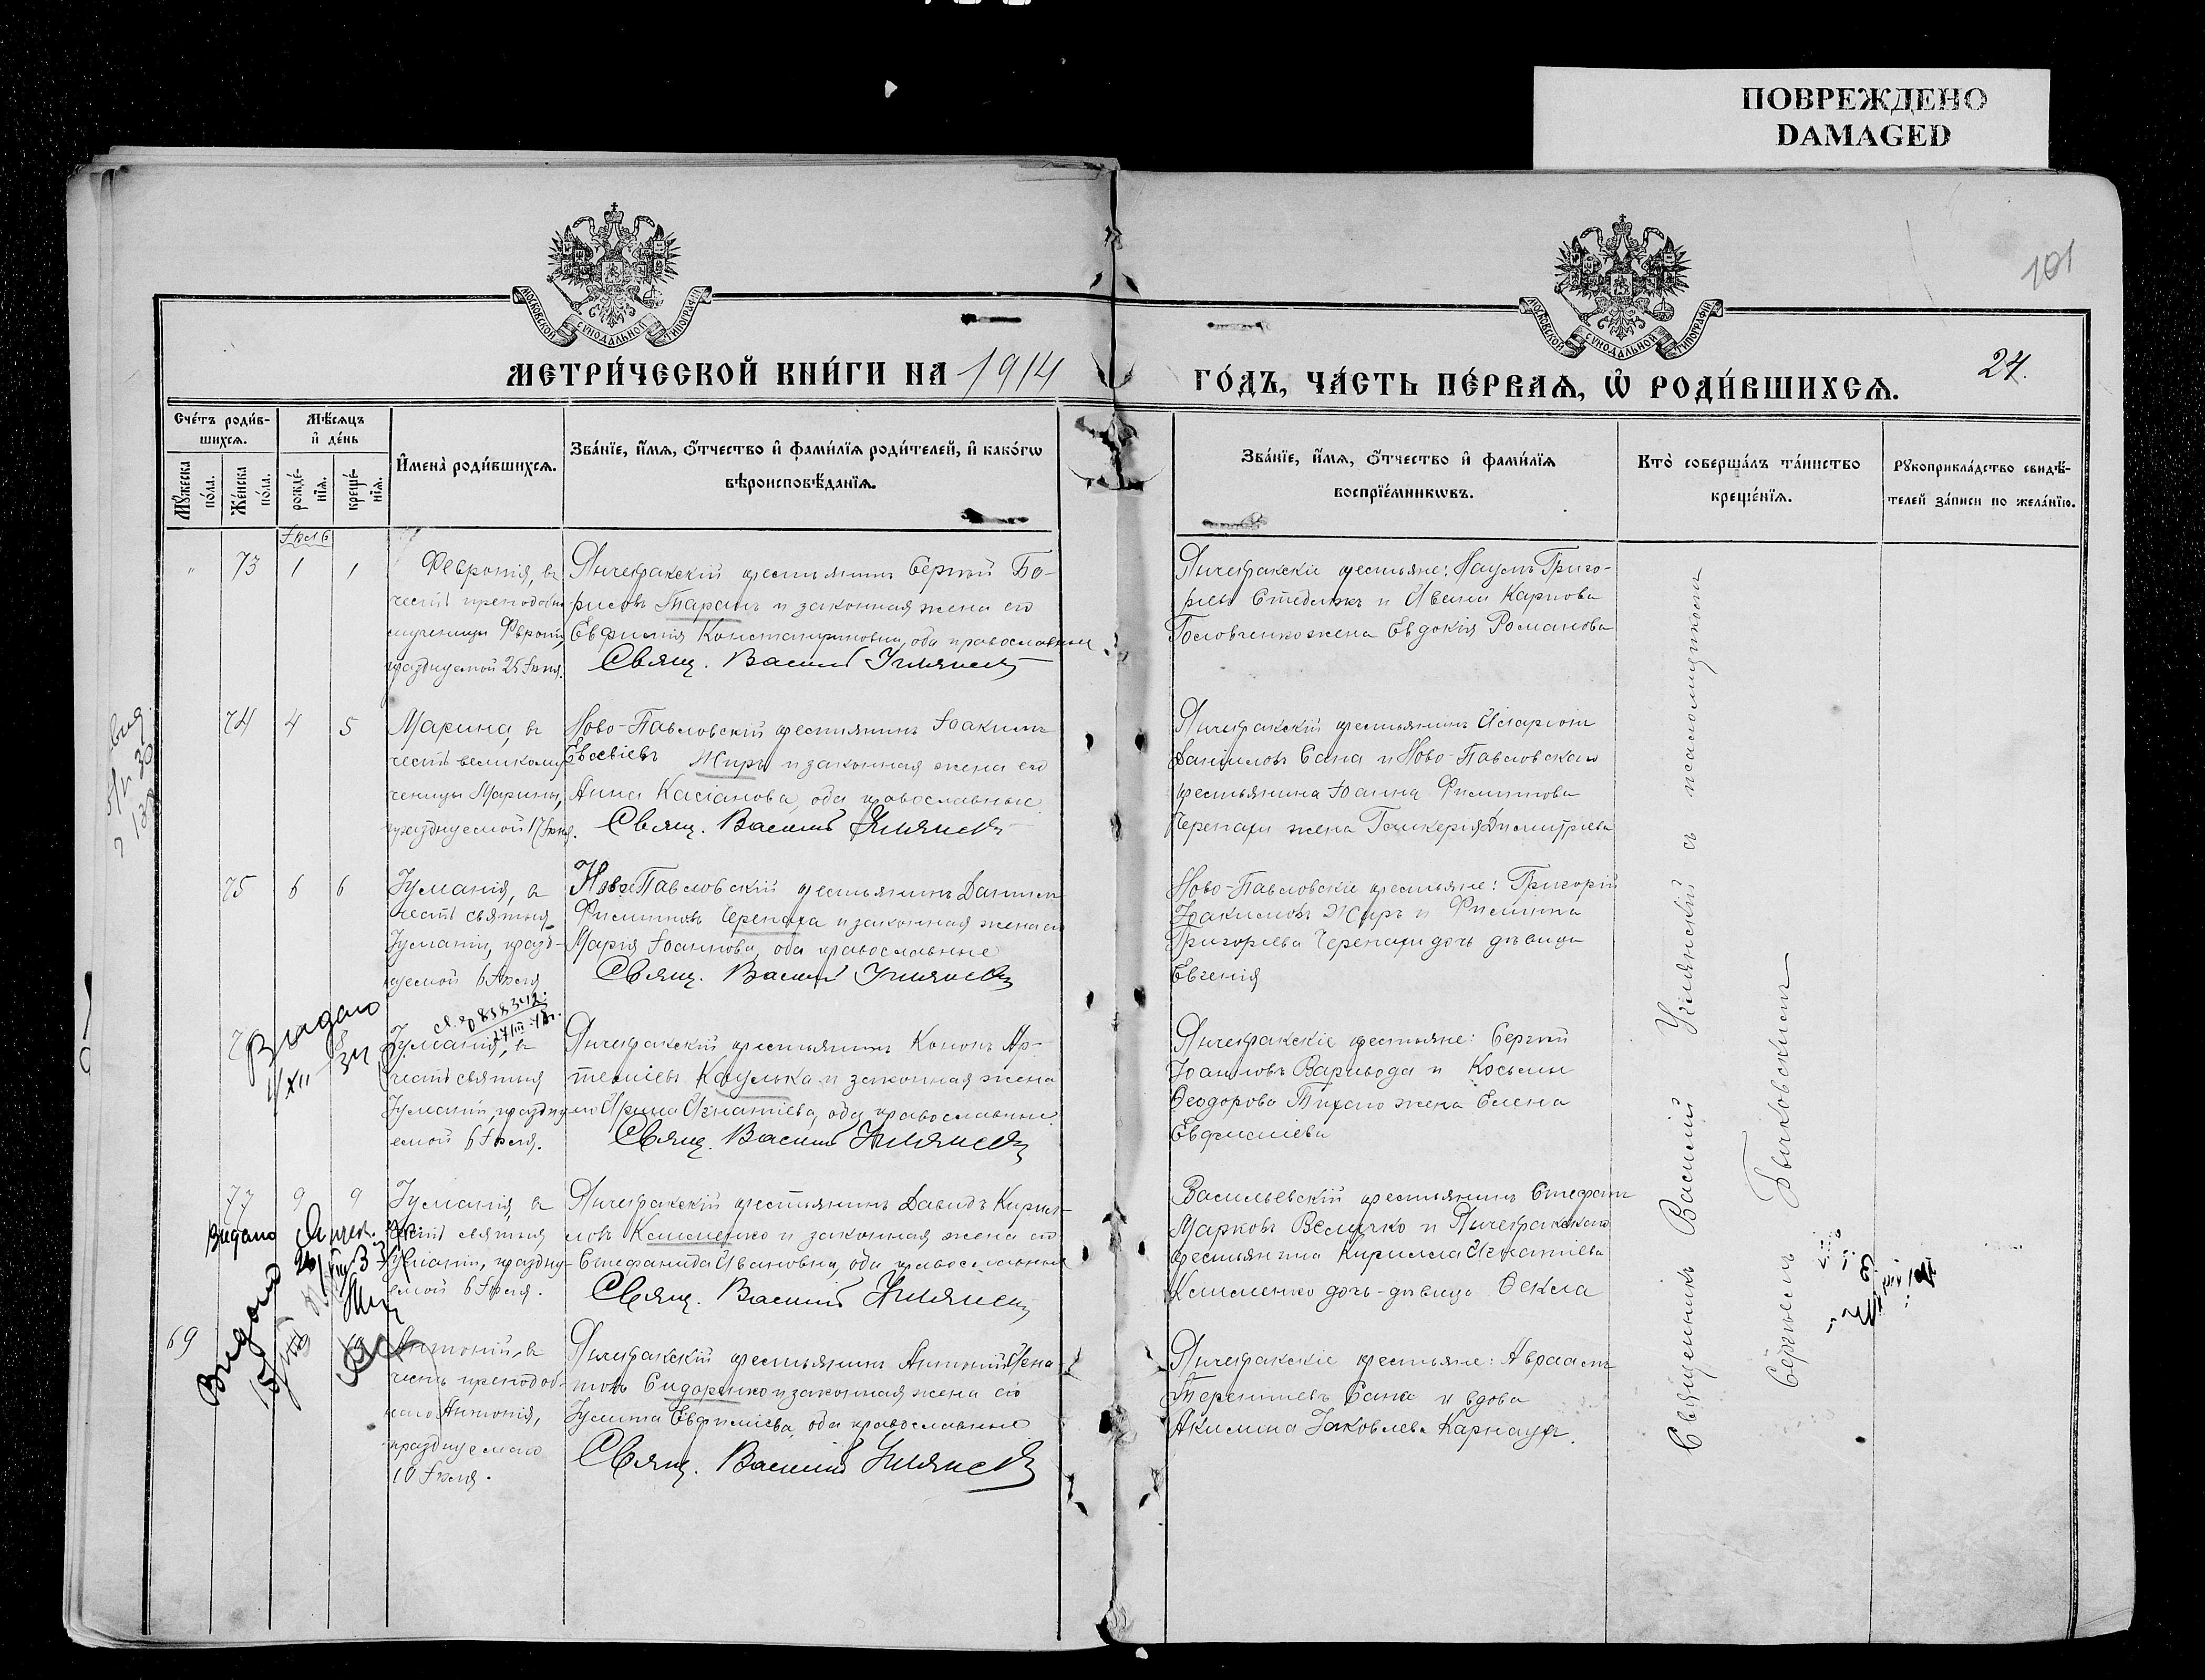 ПОВРЕЖДЕНО
DAMAGED
101
МОСКОВСКОЙ СѴНОДАЛЬНОЙ ТИПОГРАФІИ
МОСКОВСКОЙ СѴНОДАЛЬНОЙ ТИПОГРАФІИ
МЕТРИ́ЧЕСКОЙ КНИ́ГИ НА 1914
ГО́ДЪ, ЧА́СТЬ ПЕ́РВАѦ, Ѡ҆ РОДИ́ВШИХСѦ.
24.
Сче́тъ роди́в-
шихсѧ.
Мꙋ́жеска
по́ла.
Же́нска
по́ла.
Мѣ́сѧцъ
и҆ де́нь
рожде́-
нїѧ.
креще́-
нїѧ.
И҆мена̀ роди́вшихсѧ.
Зва́нїе, и҆́мѧ, ѻ҆́тчество и҆ фами́лїѧ роди́телей, и҆ како́гѡ
вѣроисповѣ́данїѧ.
Зва́нїе, и҆́мѧ, ѻ҆́тчество и҆ фами́лїѧ
воспрїе́мникѡвъ.
Кто̀ соверша́лъ та́инство
креще́нїѧ.
Рꙋкоприкла́дство свидѣ́-
телей за́писи по жела́нїю.
Іюль
73 1 1
Февронія, въ
честь преподобно
мученицы Феврoніи,
празднуемой 25 Іюня.
Янчекракскій крестьянинъ Сергій Бо-
рисовъ Таранъ и законная жена его
Евфимія Константиновна, оба православные
Свящ. Василій Умянскій
Янчекракскіе крестьяне: Наумъ Григо-
рьевъ Стеблюкъ и Ивана Карпова
Головченко жена Евдокія Романова
74 4 5
Марина, въ
честь великому
ченицы Марины,
празднуемой 17 Іюля.
Ново-Павловскій крестьянинъ Іоакимъ
Евсевіевъ Жиръ и законная жена его
Анна Касіанова, оба православные
Свящ. Василій Умянскій
Янчекракскій крестьянинъ Иларіонъ
Даніиловъ Сапа и Ново-Павловскаго
крестьянина Іоанна Филиппова
Черепахи жена Гликерія Димитріева
75 6 6
Іуліанія, въ
честь святыя
Іуліаніи, праздн-
уемой 6 Іюля
Ново-Павловскій крестьянинъ Даніилъ
Филипповъ Черепаха и законная жена его
Марія Іоаннова, оба православные
Свящ. Василій Умянскій
Ново-Павловскіе крестьяне: Григорій
Іоакимовъ Жиръ и Филиппа
Григорьева Черепахи дочь дѣвица
Евгенія
Выдано
1/XII 34
Іуліанія, въ
честь святыя
Іуліаніи, праздну-
емой 6 Іюля.
Янчекракскій крестьянинъ Кононъ Ар-
теміевъ Каулька и законная жена
его Ирина Игнатіева, оба православные
Свящ. Василій Умянскій
Янчекракскіе крестьяне: Сергій
Іоанновъ Варивода и Косьмы
Ѳеодорова Тихаго жена Елена
Евфиміева
77 9 9
Іуліанія, въ
честь святыя
Іуліаніи, праздну-
емой 6 Іюля.
Янчекракскій крестьянинъ Давидъ Кирил-
ловъ Клименко и законная жена его
Стефанида Ивановна, оба православные
Свящ. Василій Умянскій
Васильевскій крестьянинъ Стефанъ
Марковъ Величко и Янчекракскаго
крестьянина Кирилла Игнатіева
Клименко дочь-дѣвица Ѳекла
Видано
Видано
69
Антоній, въ
честь преподоб-
наго Антонія,
празднуемаго
10 Іюля.
Янчекракскій крестьянинъ Антоній Игна-
товъ Сидоренко и законная жена его
Іулитта Евфиміева, оба православные
Свящ. Василій Умянскій
Янчекракскіе крестьяне: Авраамъ
Терентіевъ Сапа и вдова
Акилина Іаковлева Карнаухъ.
Священникъ Василій Умянскій съ псаломщикомъ
Сергіемъ Бычковскимъ